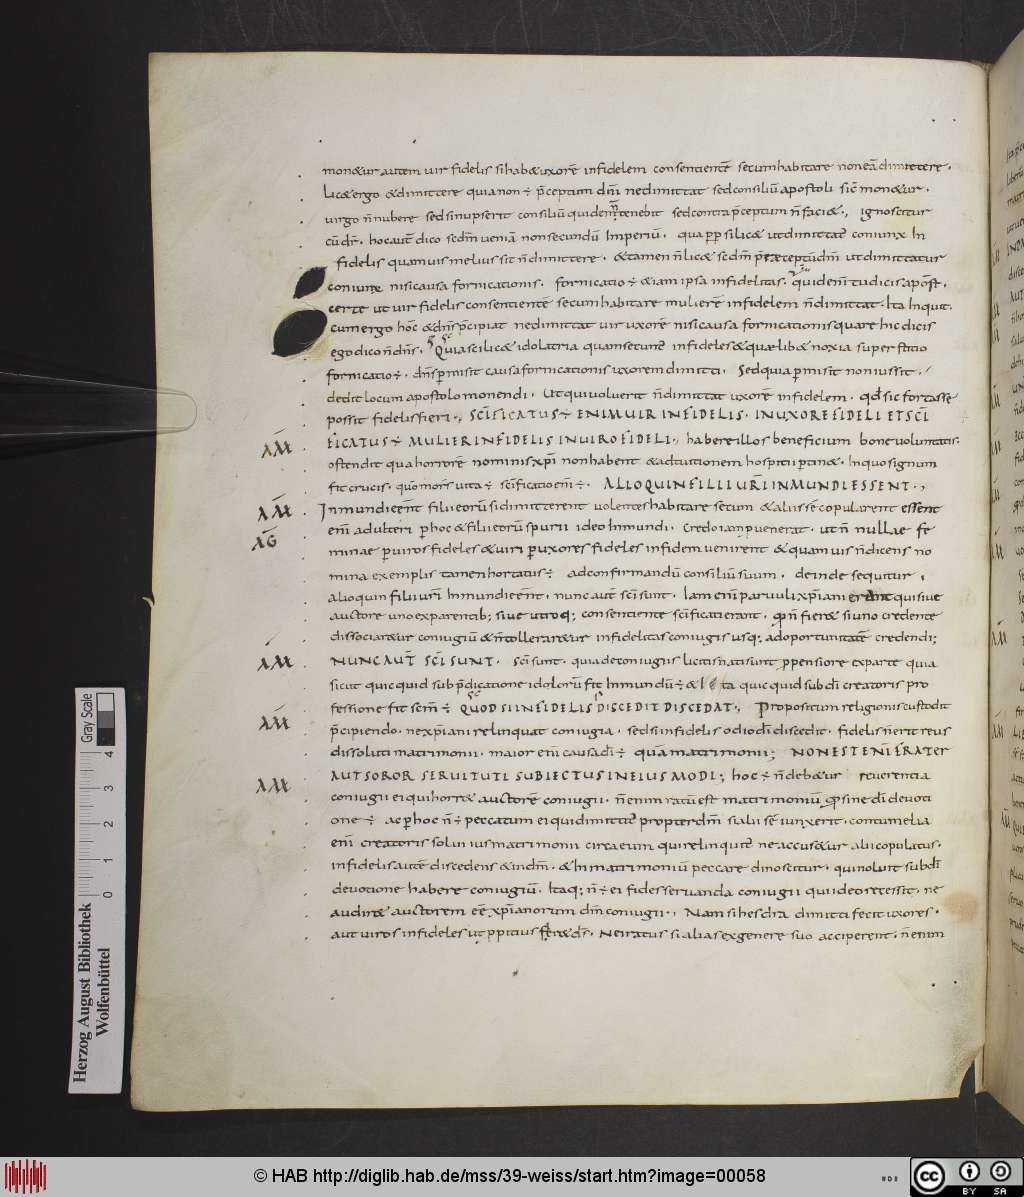 monetur autem uir fidelis si habet uxorē infidelem consentientē secum habitare non eā dimittere.
licet ergo & dimittere quia non ÷ p̄ceptum dn̄i ne dimittat sed consiliū apostoli sic̄ monetur.
uirgo n̄ nubere sed si nupserit consiliū quidem n̄ tenebit sed contra p̄ceptum n̄ faciet., ignoscitur
cū dr̄. hoc autē dico scdm̄ ueniā non secundū Imperiū. quapp̄ si licet ut dimittat̄ coniunx In
fidelis quamuis melius sit n̄ dimittere. & tamen n̄ licet scdm̄ p̄ceptū dn̄i ut dimittatur
coniunx nisi causa fornicationis. fornicatio ÷ etiam ipsa infidelitas. quid enī tu dicis apost̄.
certe ut uir fidelis consentientē secum habitare mulierē infidelem n̄ dimittat. Ita Inquit.
cum ergo hoc & dn̄s p̄cipiat ne dimittat uir uxorē nisi causa fornicationis quare hic dicis
ego dico n̄ dn̄s. Quia scilicet idolatria quam secunt̄ infideles & quaelibet noxia superstitio
fornicatio ÷. dn̄s p̄misit causa fornicationis uxorem dimitti. Sed quia permisit non iussit.
dedit locum apostolo monendi. Ut qui uoluerit n̄ dimittat uxorē infidelem. qd̄ sic fortasse
possit fidelis fieri., SCĪFICATUS ÷ ENIM UIR INFIDELIS. IN UXORE FIDELI ET SCĪ
FICATUS ÷ MULIER INFIDELIS IN UIRO FIDELI., habere illos beneficium bone uoluntatis.
ostendit qua horrorē nominis xpi non habent & ad tuitionem hospitii ptinet. In quo signum
fit crucis. quo mors uicta ÷ scīficatio enī ÷. ALLOQUIN FILII UR̄I INMUNDI ESSENT.,
AM
AM
Inmundi eēnt filii eorū si dimitterent uolentes habitare secum & aliis se copularent essent
AG
enī adulteri p hoc & filii eorū spurii ideo Inmundi. Credo iam puenerat. ut n̄ nullae fe
minae p uiros fideles & uiri p uxores fideles in fidem uenirent & quamuis n̄ dicens no
mina exemplis tamen hortatus ÷ ad confirmandū consiliū suum. deinde sequitur,
alioquin filii urī Inmundi eēnt. nunc aut̄ scī sunt. Iam enī paruuli xpiani erant qui siue
auctore uno ex parentib; siue utroq; consentiente scīficati erant. qd̄ n̄ fieret si uno credente
dissociaretur coniugiū & n̄ tolleraretur infidelitas coniugis usq; ad oportunitatē credendi;
AM
NUNC AUT̄ SCĪ SUNT. scī sunt. quia de coniugiis licitis nati sunt p pensiore ex parte quia
sicut quicquid sub p̄dicatione idolorū fit Inmundū ÷ & Ita quicquid sub dī creatoris pro
fessione fit scm̄ ÷ QUOD SI INFIDELIS DISCEDIT DISCEDAT., Propositum religionis custodit
AM
p̄cipiendo. ne xpiani relinquat coniugia. sed si infidelis odio dī discedit. fidelis n̄ erit reus
dissoluti matrimonii. maior enī causa dī ÷ quā matrimonii; NON EST ENĪ FRATER
AUT SOROR SERUITUTI SUBIECTUS IN EIUSMODI; hoc ÷ n̄ debetur reuerentia
AM
coniugii ei qui horret auctorē coniugii. n̄ enim ratū est matrimoniū quod sine dī deuoti
one ÷ ac p hoc n̄ ÷ peccatum ei qui dimittit̄ propter dm̄ si alii se iunxerit. contumelia
enī creatoris soluit ius matrimonii circa eum qui relinquit̄ ne accusetur alii copulatus.
infidelis autē discedens & in dm̄. & In matrimoniū peccare dinoscitur. quia noluit sub dī
deuotione habere coniugiū. Itaq; n̄ ÷ ei fides seruanda coniugii qui ideo recessit. ne
audiret auctorem eē xpianorum dm̄ coniugii., Nam si hesdra dimitti fecit uxores.
aut uiros infideles ut ppitius fieret ds̄. Ne iratus si alias ex genere suo acciperent. n̄ enim
Gray Scale
0 1 2 3 4
Herzog August Bibliothek
Wolfenbüttel
© HAB http://diglib.hab.de/mss/39-weiss/start.htm?image=00058
cc BY SA